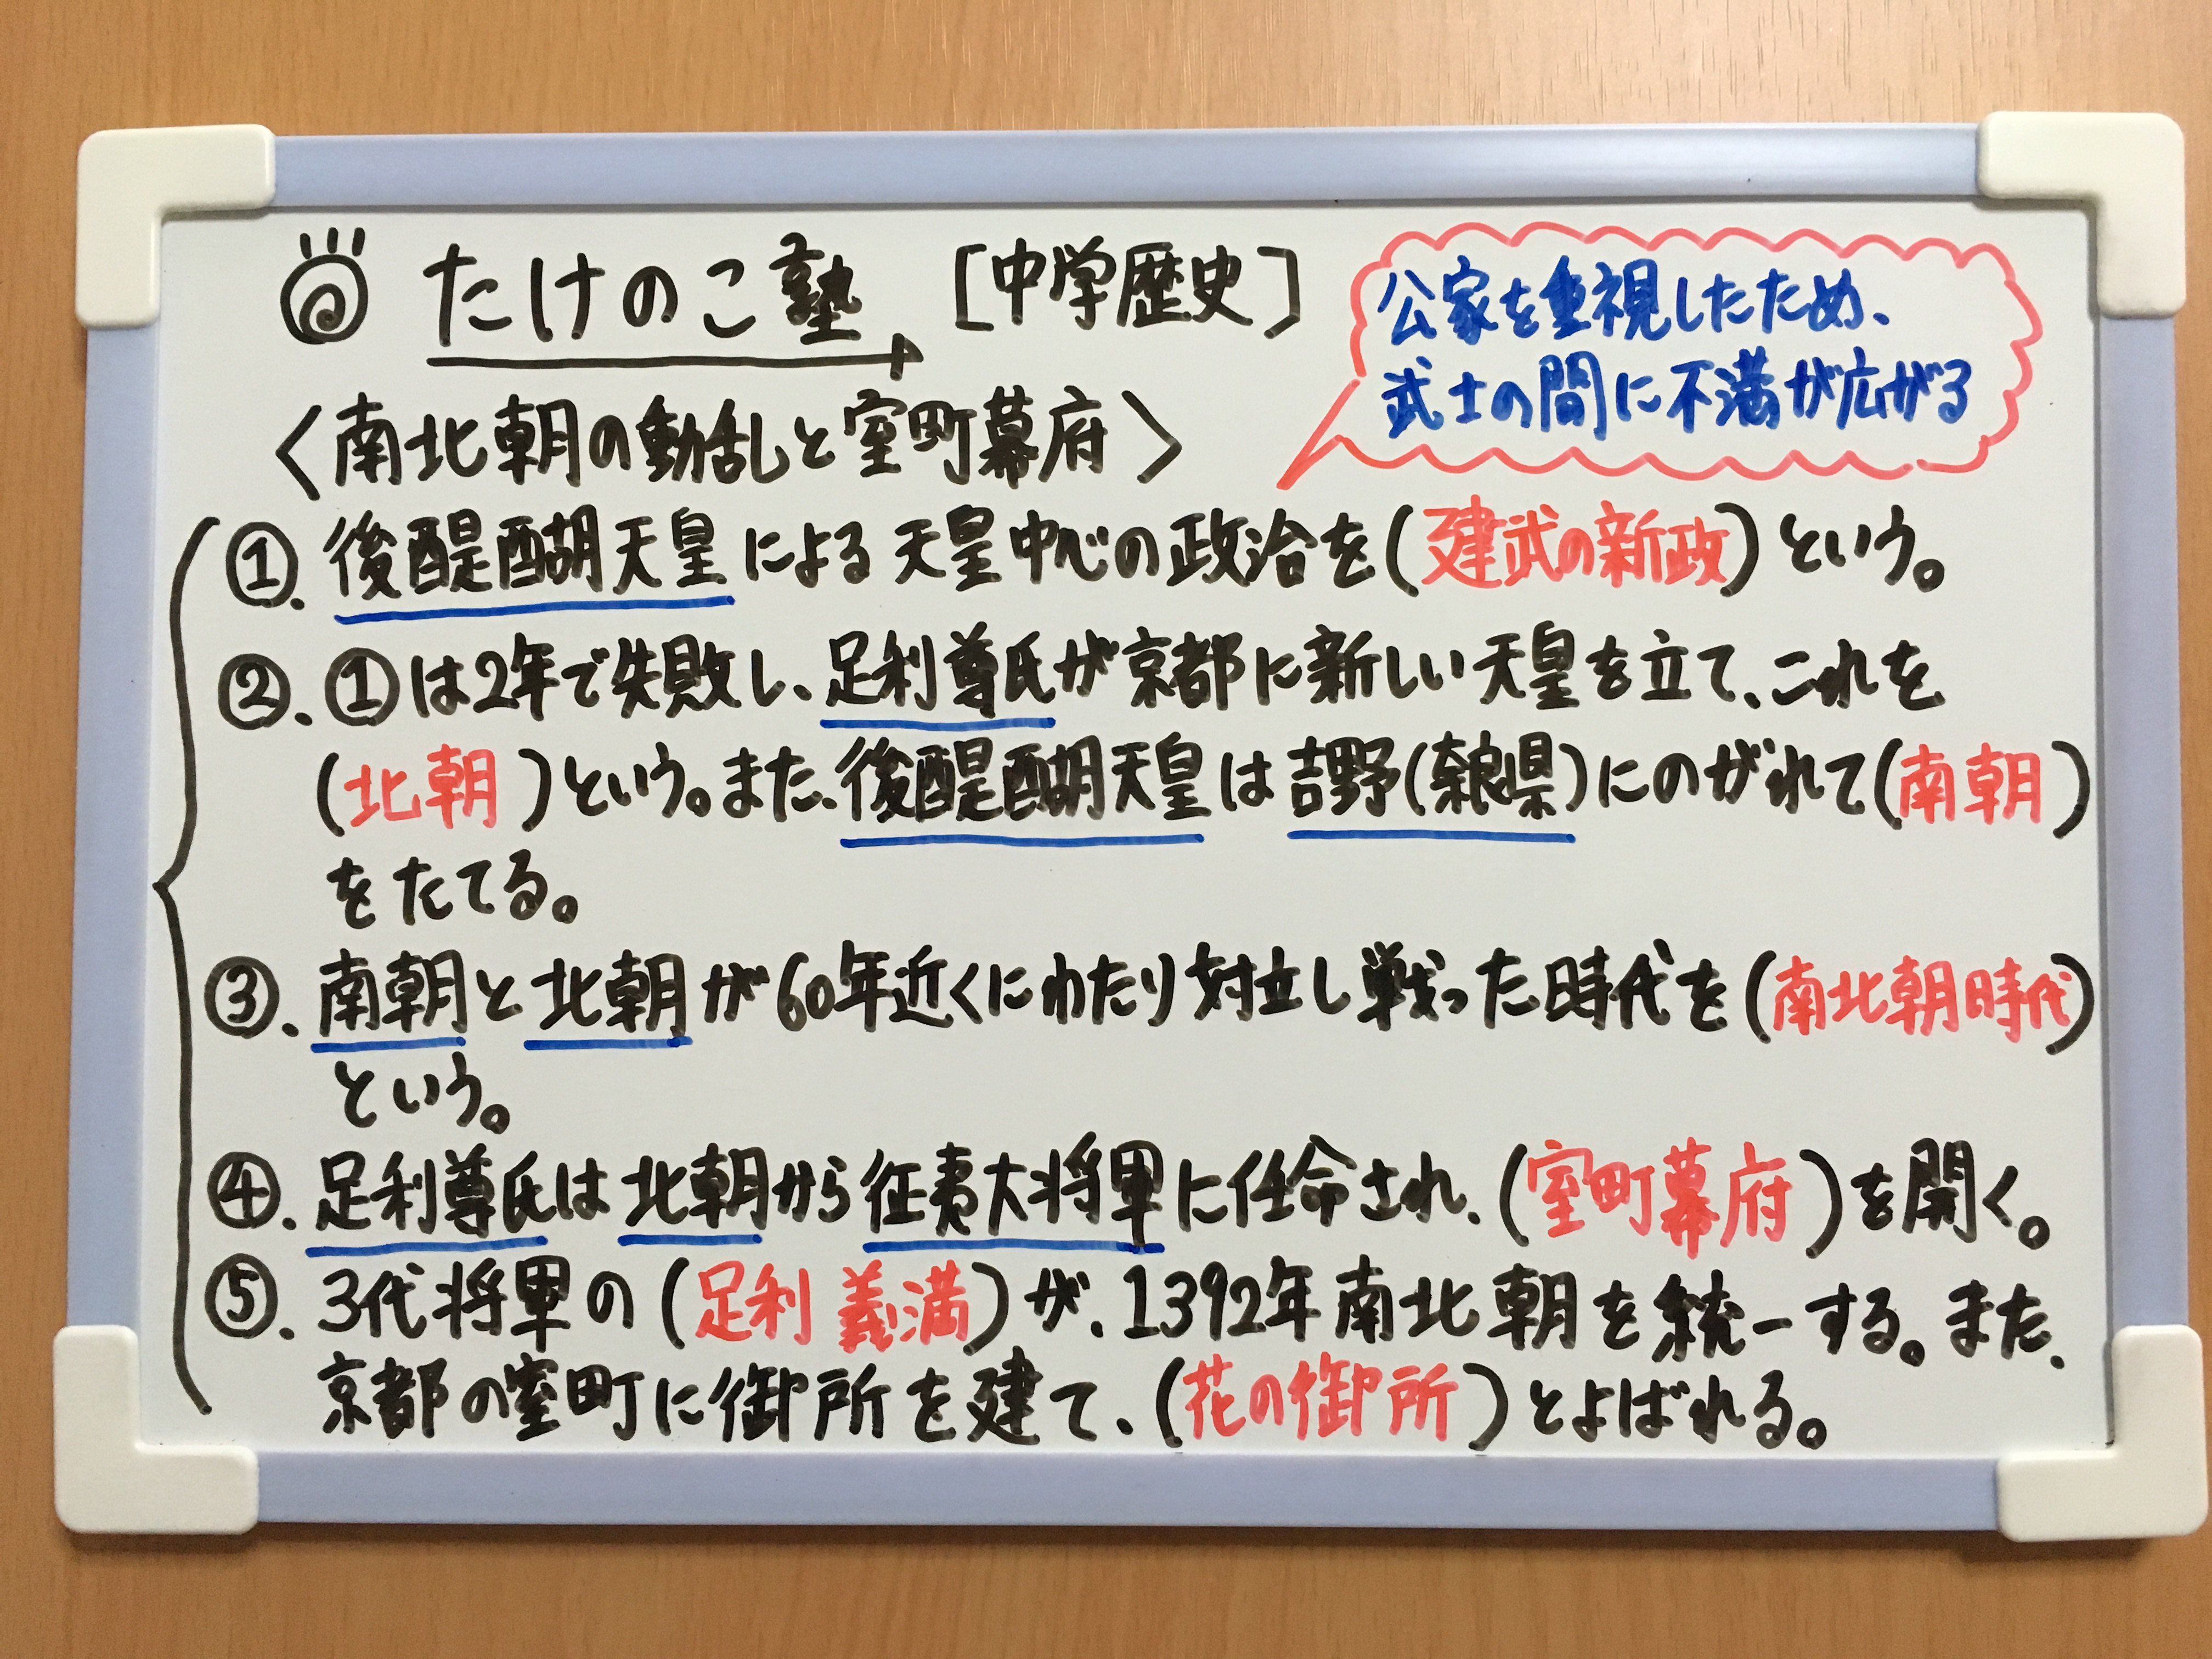 たけのこ塾 [中学歴史]
公家を重視したため、
武士の間に不満が広がる
〈南北朝の動乱と室町幕府〉
①. 後醍醐天皇による天皇中心の政治を(建武の新政)という。
②. ①は2年で失敗し、足利尊氏が京都に新しい天皇を立て、これを
(北朝)という。また、後醍醐天皇は吉野(奈良県)にのがれて(南朝)
をたてる。
③. 南朝と北朝が60年近くにわたり対立し戦った時代を(南北朝時代)
という。
④. 足利尊氏は北朝から征夷大将軍に任命され、(室町幕府)を開く。
⑤. 3代将軍の(足利義満)が、1392年南北朝を統一する。また、
京都の室町に御所を建て、(花の御所)とよばれる。